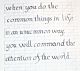 when you do the
common things in life
in an uncommon way,
you will command the
attention of the world.